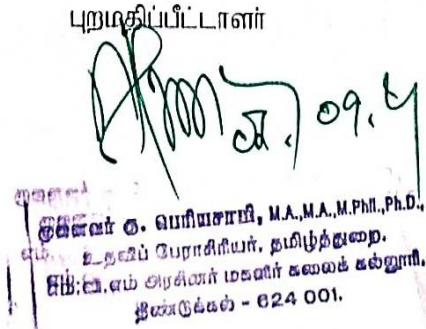 புறமதிப்பீட்டாளர்
முனைவர் கு. பெரியசாமி, M.A.,M.A.,M.Phil.,Ph.D.,
உதவிப் பேராசிரியர், தமிழ்த்துறை,
எம்.வி.எம் அரசினர் மகளிர் கலைக் கல்லூரி,
திண்டுக்கல் - 624 001.